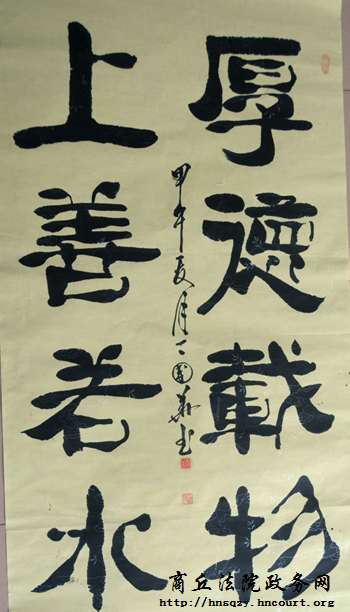 厚德載物
上善若水
甲午夏月
商丘法院政务网
http://hnsqzy.hncourt.org